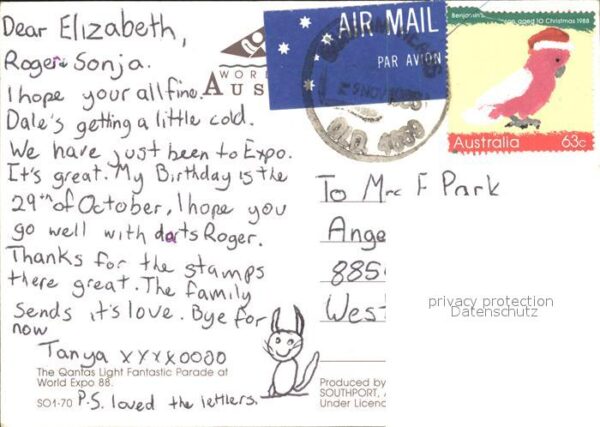 Dear Elizabeth,
Roger & Sonja.
I hope your all fine.
Dale's getting a little cold.
We have just been to Expo.
It's great. My Birthday is the
29th of October, I hope you
go well with darts Roger.
Thanks for the stamps
there great. The family
Sends it's love. Bye for
now
Tanya xxxxoooo
The Qantas Light Fantastic Parade at
World Expo 88.
SO1-70 P.S. loved the letters.
WORL
AUS
AIR MAIL
PAR AVION
NOV 1988
QLD. 4069
Benjamin aged 10 Christmas 1988
Australia 63c
To Mrs F Park
Ange
885
Wes
privacy protection
Datenschutz
Produced by
SOUTHPORT, A
Under Licenc